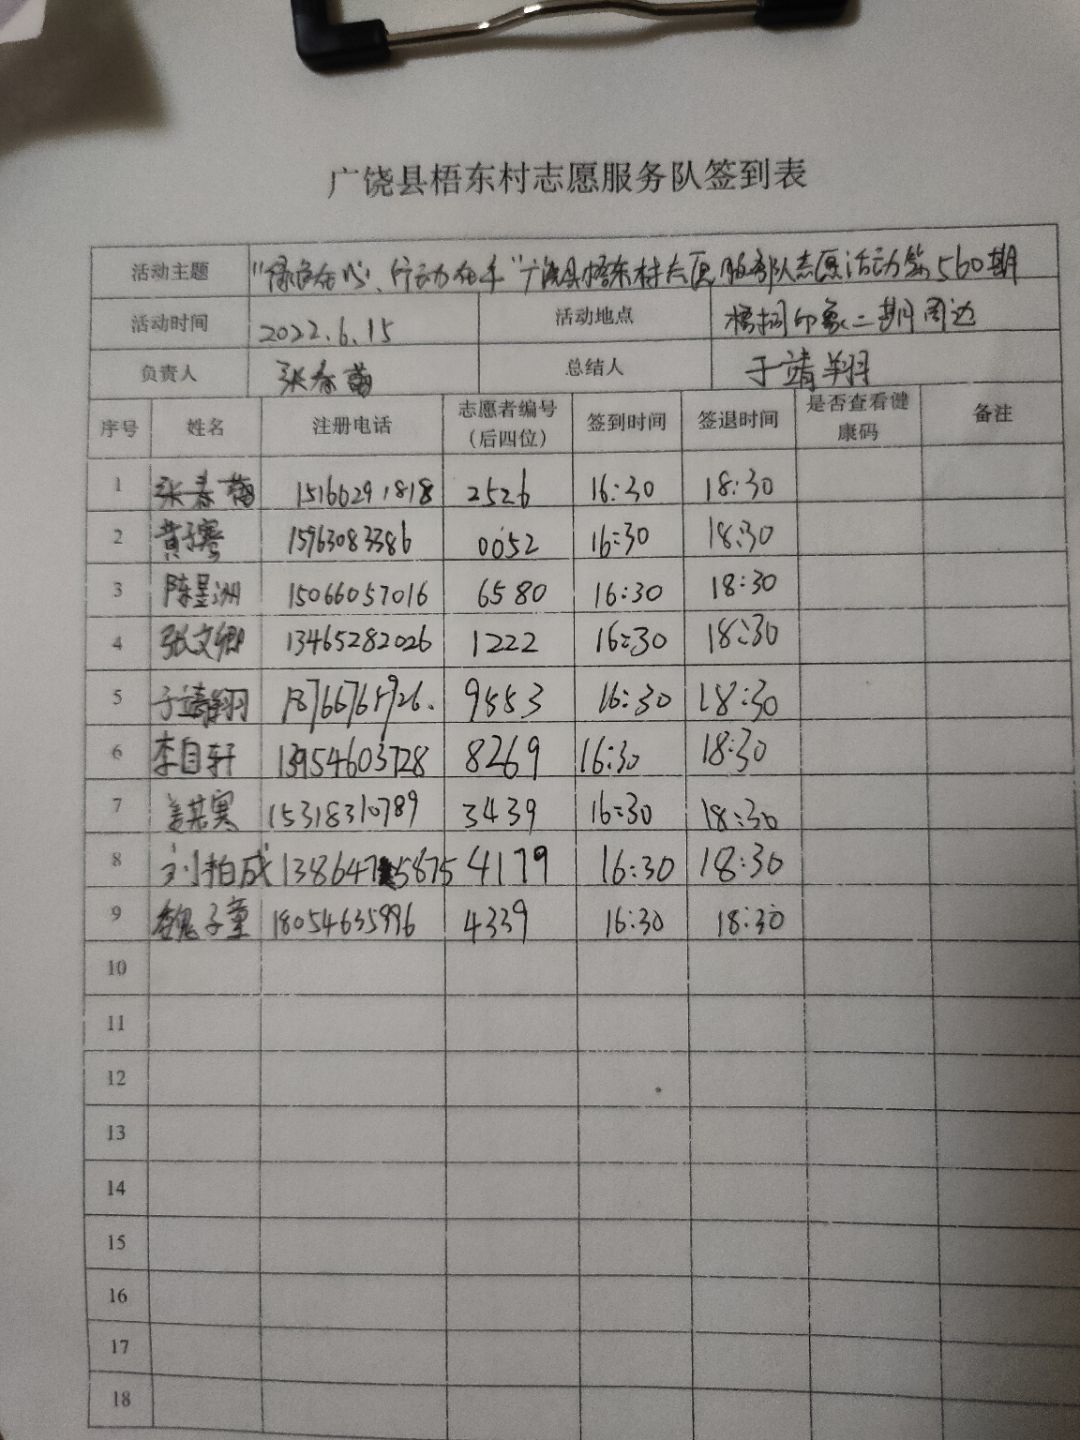 广饶县梧东村志愿服务队签到表
活动主题 "绿色在心、行动在手"广饶县梧东村志愿服务队志愿活动第560期
活动时间 2022.6.15 活动地点 梧桐印象二期周边
负责人 张春梅 总结人 于靖翔
序号 姓名 注册电话 志愿者编号（后四位） 签到时间 签退时间 是否查看健康码 备注
1 张春梅 15166291818 2526 16:30 18:30
2 黄子骞 15963083386 0052 16:30 18:30
3 陈昱洲 15066057016 6580 16:30 18:30
4 张文卿 13465282026 1222 16:30 18:30
5 于靖翔 18766765926. 9553 16:30 18:30
6 李自轩 13954603728 8269 16:30 18:30
7 15318310789 3439 16:30 18:30
8 刘柏成 13864715875 4179 16:30 18:30
9 魏子童 18054635996 4339 16:30 18:30
10
11
12
13
14
15
16
17
18